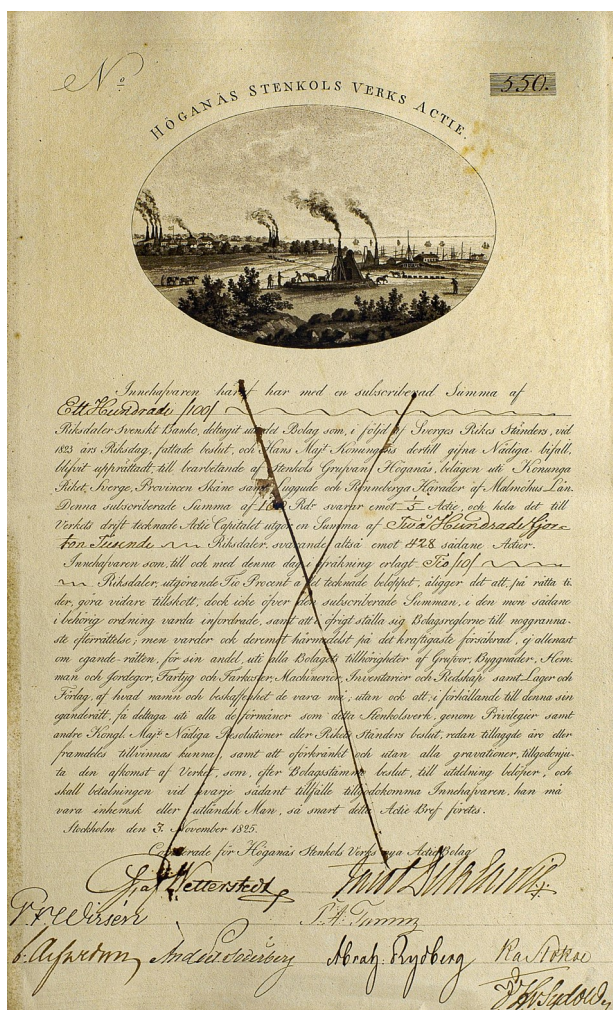 No 550.
HÖGANÄS STENKOLS VERKS ACTIE.
Innehafvaren häraf har med en subscriberad Summa af
Ett Hundrade /100/
Riksdaler Svenskt Banko, deltagit uti det Bolag som, i följd af Sveriges Rikes Ständers, vid
1823 års Riksdag, fattade beslut, och Hans Majt Konungens dertill gifna Nådiga bifall,
blifvit upprättadt, till bearbetande af Stenkols Grufvan Höganäs, belägen uti Konunga
Riket, Sverge, Provincen Skåne samt Luggude och Rönneberga Härader af Malmöhus Län.
Denna subscriberade Summa af 100 Rdr svarar emot 1/5 Actie, och hela det till
Verkets drift tecknade Actie Capitalet utgör en Summa af Två Hundrade fjor-
ton Tusende Riksdaler, svarande altså emot 428 sådane Actier.
Innehafvaren som, till och med denna dag i afräkning erlagt Tio /10/
Riksdaler, utgörande Tio Procent af tecknade beloppet, ålägger det att, på rätta ti-
der, göra vidare tillskott, dock icke öfver den subscriberade Summan, i den mon sådane
i behörig ordning varda infordrade, samt att i öfrigt ställa sig Bolagsreglorne till noggranna-
ste efterrättelse; men varder ock deremot härmedelst på det kraftigaste försäkrad, ej allenast
om egande-rätten, för sin andel, uti alla Bolagets tillhörigheter af Grufvor, Byggnader, Hem-
man och Jordegor, Fartyg och Farkoster, Machinerier, Inventarier och Redskap samt Lager och
Förlag, af hvad namn och beskaffenhet de vara må; utan ock att, i förhållande till denna sin
eganderätt, få deltaga uti alla de förmåner som detta Stenkolsverk, genom Privilegier samt
andre Kongl. Majts Nådiga Resolutioner eller Rikets Ständers beslut, redan tillagde äro eller
framdeles tillvinnas kunna, samt att oförkränkt och utan alla gravationer, tillgodonju-
ta den afkomst af Verket, som, efter Bolagsstämmans beslut, till utdelning belöper, och
skall betalningen vid hvarje sådant tillfälle tillgodokomma Innehafvaren, han må
vara inhemsk eller utländsk Man, så snart detta Actie Bref företes.
Stockholm den 3. November 1825.
Committerade för Höganäs Stenkols Verks nya Actie Bolag
G. af Wetterstedt
Wirsén P. A. Tamm
Anders Söderberg Abrah: Rydberg